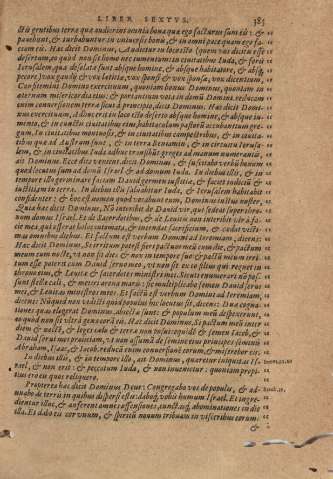 LIBER SEXTVS. 385
ctis gentibus terrę quæ audierint omnia bona quæ ego facturus sum eis: &
pauebunt, & turbabuntur in vniuersis bonis, & in omni pace quam ego fa-
ciam eis. Hæc dicit Dominus, Audietur in loco isto (quem vos dicitis esse
desertum, eo quòd non sit homo nec iumentum: in ciuitatibus Iuda, & foris
Ierusalem, quæ desolatæ sunt absque homine, & absque habitatore, & absq;
pecore) vox gaudij & vox lætitiæ, vox sponsi & vox sponsæ, vox dicentium,
Confitemini Domino exercituum, quoniam bonus Dominus, quoniam in
æternum misericordia eius: & portantium vota in domũ Domini. reducam
enim conuersionem terræ sicut à principio, dicit Dominus. Hæc dicit Domi-
nus exercituum, adhuc erit in loco isto deserto absque homine, & absque iu-
mento, & in cunctis ciuitatibus eius, habitaculum pastorũ accubantium gre-
gum. In ciuitatibus montuosis, & in ciuitatibus campestribus, & in ciuita-
tibus quæ ad Austrum sunt, & in terra Beniamin, & in circuitu Ierusa-
lem, & in ciuitatibus Iuda adhuc transibũt greges ad manum numerantis,
ait Dominus. Ecce dies venient, dicit Dominus, & suscitabo verbũ bonum
quod locutus sum ad domũ Israel & ad domum Iuda. In diebus illis, & in
tempore illo germinare faciam Dauid germen iustitiæ, & faciet iudiciũ &
iustitiam in terra. In diebus illis saluabitur Iuda, & Ierusalem habitabit
confidenter: & hoc est nomen quod vocabunt eum, Dominus iustus noster.
Quia hæc dicit Dominus, Nõ interibit de Dauid vir, qui sedeat super thro-
num domus Israel. Et de Sacerdotibus, & de Leuitis non interibit vir à fa-
cie mea, qui offerat holocautomata, & incendat sacrificium, & cædat victi-
mas omnibus diebus. Et factum est verbum Domini ad Ieremiam, dicens:
Hæc dicit Dominus, Si irritum potest fieri pactũ meũ cum die, & pactum
meum cum nocte, vt non sit dies & nox in tempore suo: & pactũ meum irri-
tum esse poterit cum Dauid seruo meo, vt non sit ex eo filius qui regnet in
throno eius, & Leuitæ & sacerdotes ministri mei. Sicuti enumerari nõ pos-
sunt stellæ cæli, & metiri arena maris: sic multiplicabo semen Dauid serui
mei, & Leuitas ministros meos. Et factũ est verbum Domini ad Ieremiam,
dicens: Nunquid non vidisti quid populus hic locutus sit, dicens: Duæ cogna
tiones quas elegerat Dominus, abiectæ sunt: & populum meũ despexerunt,
eo quod non sit vltra gens coram eis. Hæc dicit Dominus, Si pactum meũ inter
diem & noctẽ, & leges cælo & terræ non posui: equidẽ & semen Iacob, &
Dauid serui mei proiiciam, vt non assumã de semine eius principes seminis
Abraham, Isaac, & Iacob. reducã enim conuersionẽ eorum, & miserebor eis.
In diebus illis, & in tempore illo, ait Dominus, quæretur iniquitas Is-
rael, & non erit: & peccatum Iuda, & non inuenietur: quoniam propi-
tius ero eis quos reliquero.
Propterea hæc dicit Dominus Deus: Congregabo vos de populis, & ad-
unabo de terris in quibus dispersi estis: daboq; vobis humum Israel. Et ingre-
dientur illuc, & auferent omnes offensiones, cunctasq; abominationes in die
illa. Et dabo eis cor vnum, & spiritũ nouum tribuam in visceribus eorum:
&